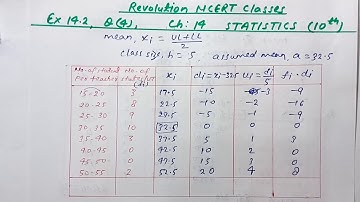 Revolution NCERT Classes
Ex 14.2, Q(4), Ch: 14 STATISTICS (10th)
mean, xi = UL+LL / 2
class size, h = 5, assumed mean, a = 32.5
No. of students Per teacher No. of states (fi) xi di = xi-32.5 ui = di/5 fi.di
15-20 3 17.5 -15 -3 -9
20-25 8 22.5 -10 -2 -16
25-30 9 27.5 -5 -1 -9
30-35 10 32.5 0 0 0
35-40 3 37.5 5 1 3
40-45 0 42.5 10 2 0
45-50 0 47.5 15 3 0
50-55 2 52.5 20 4 8